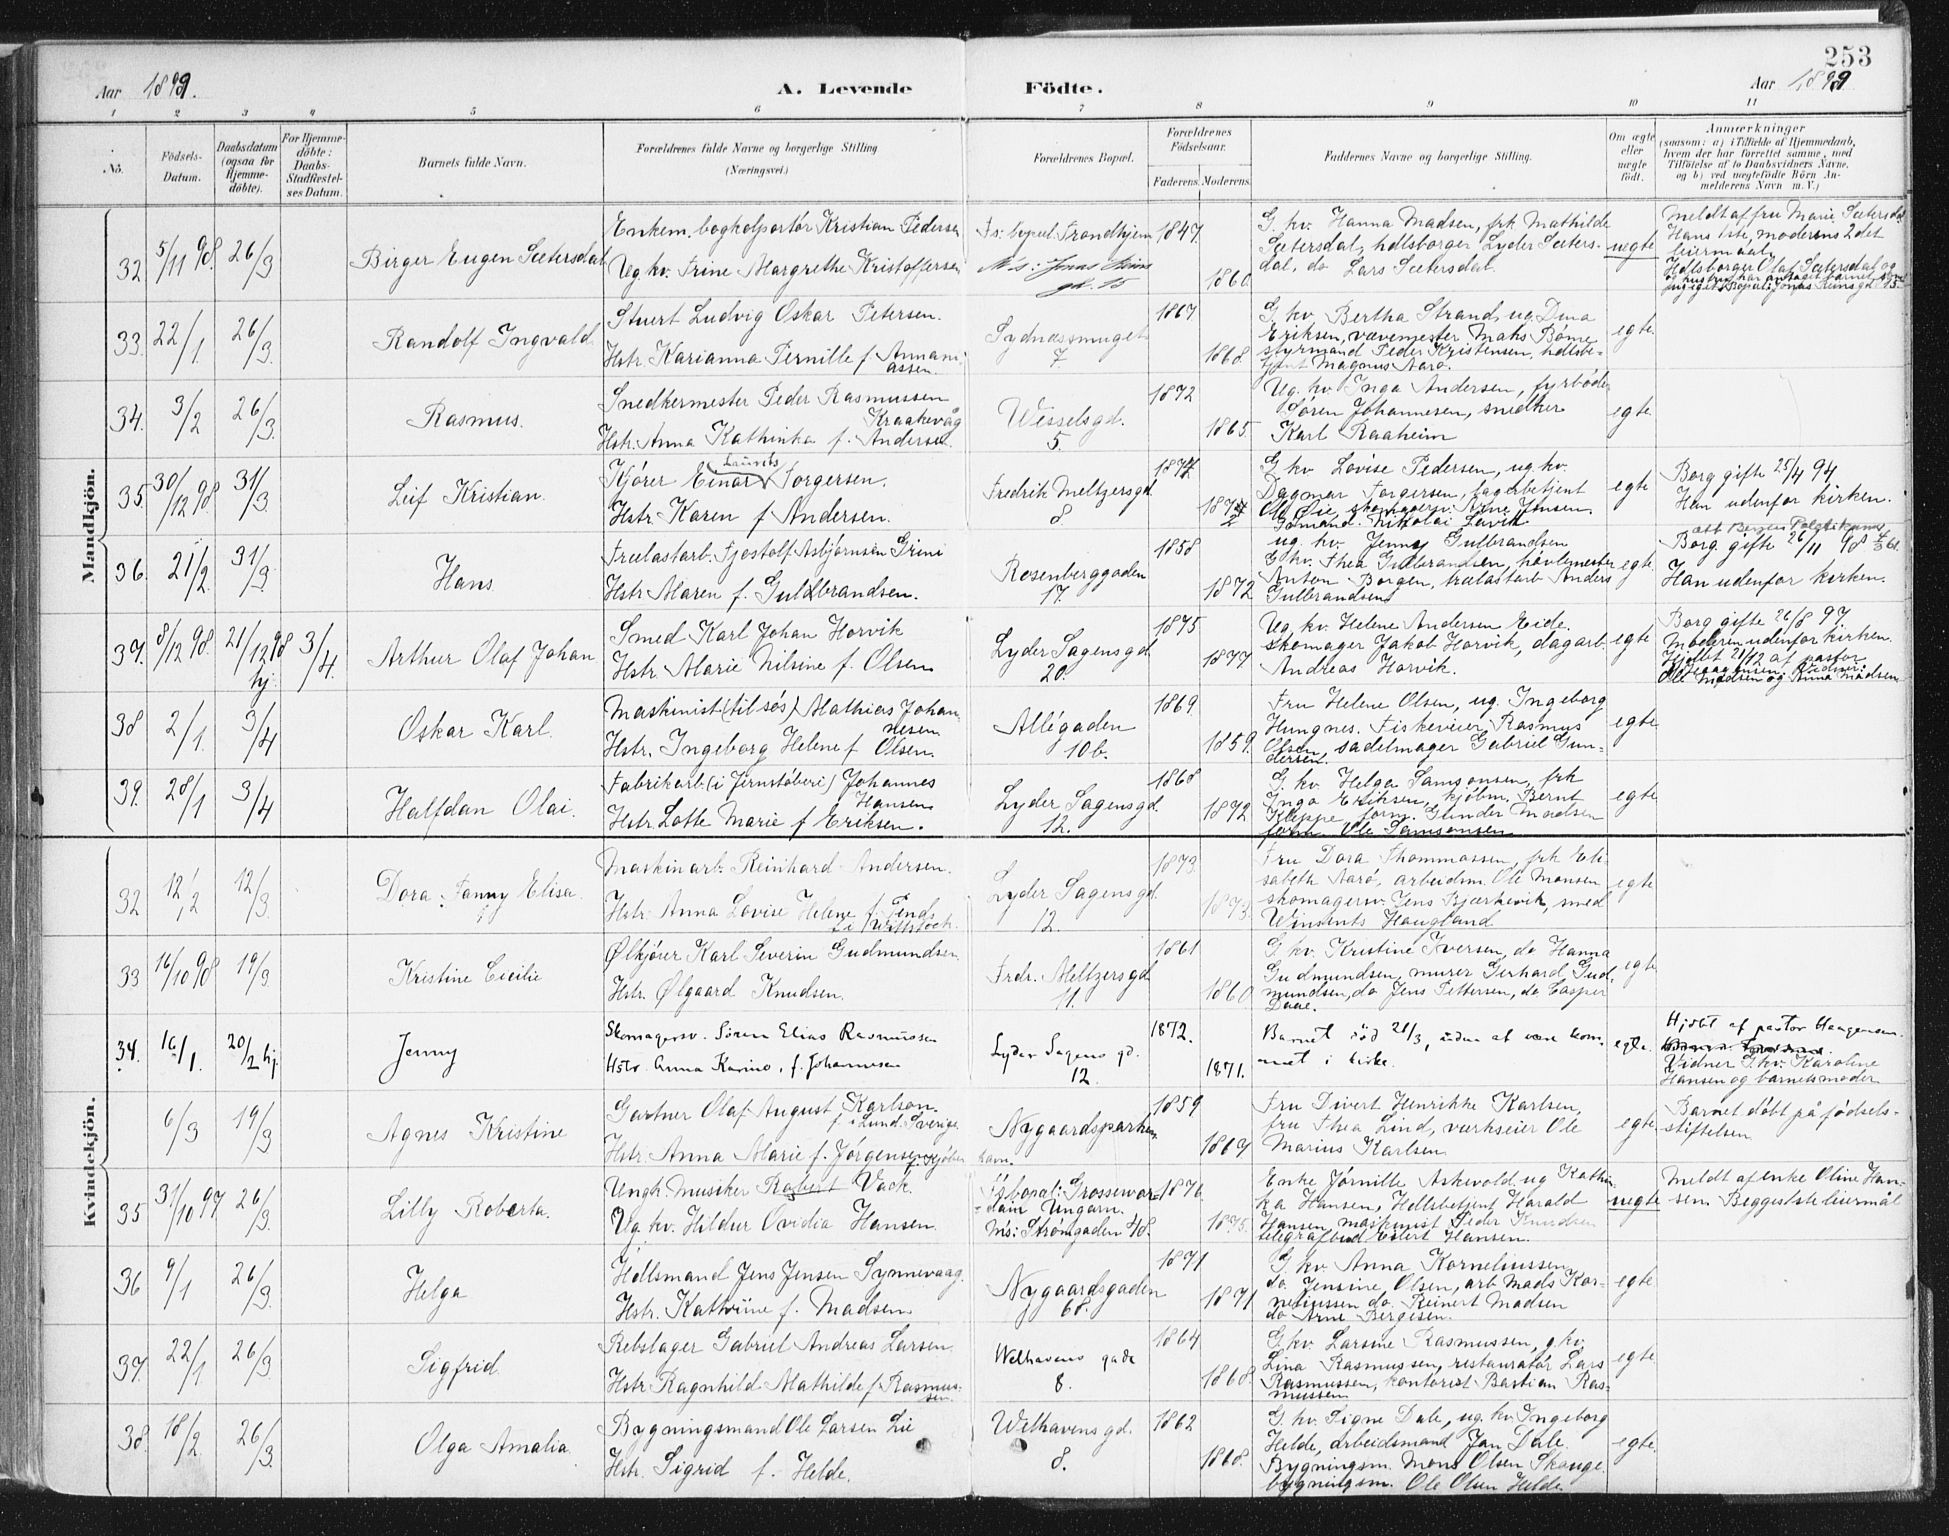 253
Aar 1899.
A. Levende Födte.
Aar 1899
1 2 3 4 5 6 7 8 9 10 11
No.
Födsels-Datum.
Daabsdatum (ogsaa for Hjemme-döbte).
For Hjemme-döbte: Daabs-Stadfæstel-ses Datum.
Barnets fulde Navn.
Forældrenes fulde Navne og borgerlige Stilling (Næringsvei.)
Forældrenes Bopæl.
Forældrenes Födselsaar.
Faderens. Moderens.
Faddernes Navne og borgerlige Stilling.
Om ægte eller uægte födt.
Anmærkninger
(saasom: a) i Tilfælde af Hjemmedaab,
hvem der har forrettet samme, med
Tilföielse af to Daabsvidners Navne,
og b) ved uegtefödte Börn An-
melderens Navn m. V.)
Mandkjön.
32. 5/11 98. 26/3 Birger Eugen Sætersdal
Enkem. bogkolportör Kristian Pedersen
Ug. kv. Trine Margrethe Kristoffersen
Fs: bopæl. Trondhjem
Ms: Jonas Reins gd. 15
1847. 1860.
G. kv. Hanna Madsen, frk Mathilde
Sætersdal, hdlsborger Lyder Sæters-
dal, do Lars Sætersdal.
uegte
Meldt af fru Marie Sætersdal
Hans 1ste, moderens 2det
leiermaal.
Hdlsborger Olaf Sætersdal og
33. 22/1 26/3 Randolf Ingvald
Stuert Ludvig Oskar Petersen.
Hstr. Karianna Pernille f. Annani-
assen.
Sydnæssmuget
7
1867 1868.
G. kv. Bertha Strand, ug. Dina
Eriksen, vævemester Maks Böme
styrmand Peder Kristensen, hdlsbe-
tjent Magnus Aarö.
egte.
34. 3/2 26/3. Rasmus.
Snedkermester Peder Rasmussen
Kraakevåg
Hstr. Anna Kathinka f. Andersen.
Wesselsgd.
5.
1872 1865.
Ug. kv. Inga Andersen, fyrböder
Sören Johannesen, snedker
Karl Raaheim
egte.
35. 30/12 98 31/3 Leif Kristian.
Laurits
Kjörer Einar Torgersen.
Hstr. Karen f. Andersen.
Fredrik Meltzersgd.
8.
1874
G. kv Lovise Pedersen, ug. kv.
Dagmar Torgersen, lagerbetjent
Ole Öie, skomagersv. Arne Jensen
Gdmand. Nikolai Lavik
egte
Borg gifte 25/4 94
Han udenfor kirken.
36. 21/2. 31/3. Hans
Trælastarb. Tjostolf Asbjörnsen Grini
Hstr. Maren f. Guldbrandsen.
Rosenberggaden
17.
1858 1872
ug. kv. Jenny Gulbrandsen
G. kv. Thea Gulbrandsen, hövlemester
Anton Borgen, trælastarb Anders
Gulbrandsen
egte.
Borg. gifte 26/11 98
Han udenfor kirken.
37. 8/12 98. 21/12 98 hj. 3/4. Arthur Olaf Johan
Smed Karl Johan Horvik
Hstr. Marie Nilsine f. Olsen
Lyder Sagens gd.
20.
1875. 1877
Ug. kv. Helene Andersen Eide.
skomager Jakob Horvik, dagarb.
Andreas Horvik.
egte
Borg gifte 26/8 97.
Moderen udenfor kirken.
Hjdbt 21/12 af pastor
Ole Madsen og Anna Madsen
38 2/1. 3/4 Oskar Karl.
Maskinist (tilsös) Mathias Johan-
nesen
Hstr. Ingeborg Helene f Olsen.
Allégaden
10b.
1869. 1859.
Fru Helene Olsen, ug. Ingeborg
Hungnes. Fiskeveier Rasmus
Olsen, sadelmager Gabriel Gun-
dersen.
egte.
39. 28/1 3/4 Halfdan Olai.
Fabrikarb. (i Jernstöberi) Johannes
Hansen
Hstr. Lotte Marie f Eriksen.
Lyder Sagensgd.
12.
1868 1872
G. kv. Helga Samsonsen, frk
Inga Eriksen, kjöbm. Bernt
Kleppe, form. Gunder Madsen
form. Ole Samsonsen
egte
Kvindekjön.
32 12/2 12/3 Dora Fanny Elise.
Maskinarb. Reinhard Andersen.
Hstr. Anna Lovise Helene f. Fends
Lyder Sagensgd.
12.
1873. 1873.
Fru Dora Thommassen, frk Eli-
sabeth Aarö, arbeidsm. Ole Monsen
skomagersv. Jens Bjerkevik, smed
Winsents Haugland
egte
33 16/10 98 19/3 Kristine Cecilie
Ölkjörer Karl Severin Gudmundsen.
Hstr. Ölgaard Knudsen.
Fredr. Meltzersgd
11.
1861 1860
G. kv. Kristine Iversen, do Hanna
Gudmundsen, murer Gerhard Gud-
mundsen, do Jens Pettersen, do Casper
Daae.
egte
34. 16/1. 20/2 hj. Jenny
Skomagersv. Sören Elias Rasmussen
Hstr. Anna Karine, f. Johannesen
Lyder Sagens gd.
12.
1872. 1871.
Barnet död 21/3, uden at være kom-
met i kirke.
egte.
Hjdbt af pastor Haagensen.
Vidner G. kv. Karoline
Hansen og barnets moder
6/3 19/3 Agnes Kristine
Gartner Olaf August Karlson.
f. i Lund. Sverige
Hstr. Anna Marie f. Jörgensen, f. Kjöben-
havn.
Nygaardsparken
1859 1867
Fru Divert Henrikke Karlsen,
fru Thea Lind, værkseier Ole
Marius Karlsen
egte.
Barnet döbt på födsels-
stiftelsen.
35 31/10 97 26/3. Lilly Roberta.
Ungk. musiker Robert Vack.
Ug. kv. Hildur Ovidia Hansen.
Fs bopæl: Grosswar-
dain Ungarn.
Ms: Strömgaden 48.
1876. 1875.
Enke Jörnille Askevold, ug Kathin-
ka Hansen, Hdlsbetjent Harald
Hansen, maskinist Peder Knudsen
telegrafbud Eilert Hansen.
uegte
Meldt af enke Oline Han-
sen. Begges 1ste leiermål
36 9/1 26/3 Helga
Hdlsmand Jens Jensen Synnevaag.
Hstr. Kathrine f. Madsen.
Nygaardsgaden
68.
1871 1871
G. kv. Anna Korneliussen
do Jensine Olsen, arb Mads Kor-
neliussen do. Reinert Madsen
do Arne Bergesen.
egte.
37. 22/1 26/3. Sigfrid
Rebslager Gabriel Andreas Larsen
Hstr. Ragnhild Mathilde f. Rasmus-
sen.
Welhavens gade
8.
1864 1868.
G. kv. Larsine Rasmussen, g. kv.
Lina Rasmussen, restauratör Lars
Rasmussen, kontorist Bastian Ras-
mussen
egte.
38. 18/2. 26/3. Olga Amalia.
Bygningsmand Ole Larsen Lie
Hstr. Sigrid f. Helde.
Welhavensgd.
8.
1862 1868.
G. kv. Signe Dale, ug. kv. Ingeborg
Helde, arbeidsmand Jan Dale.
Bygningsm. Mons Olsen Skauge
bygningsm. Ole Olsen Helde.
egte.